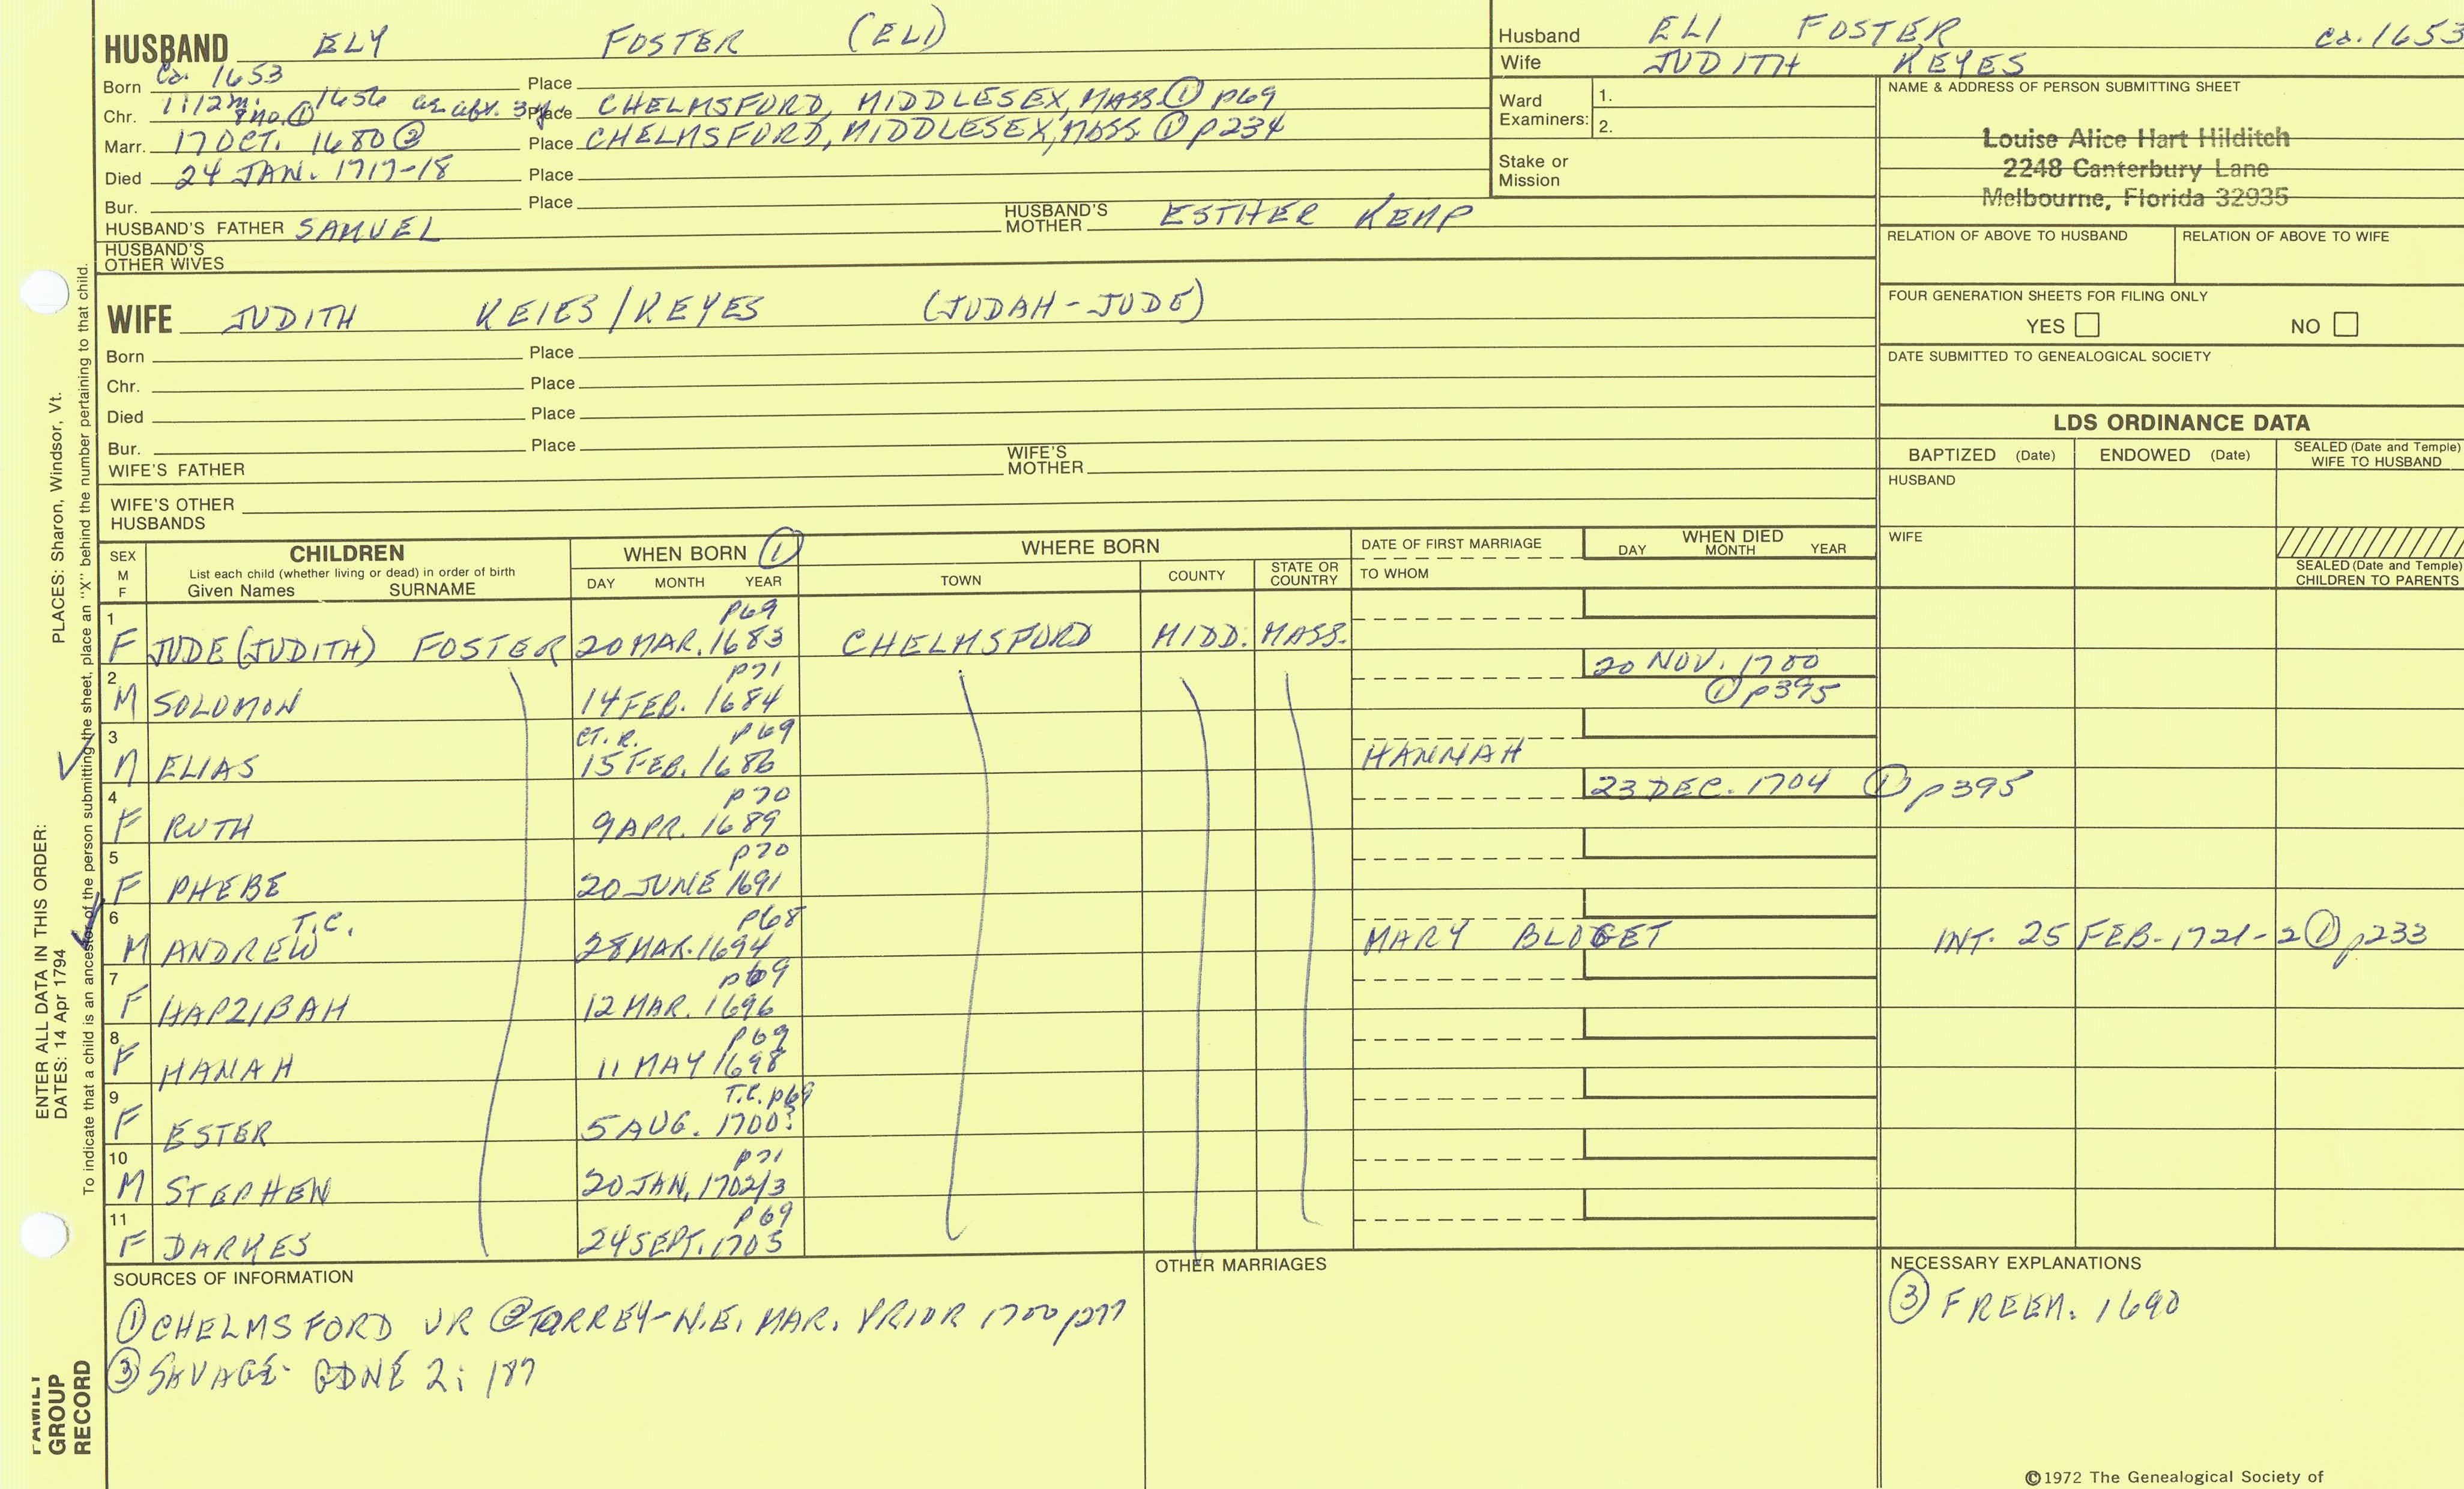 HUSBAND ELY FOSTER (ELI)
Born Ca. 1653 Place
Chr. 11:12m: 1656 ae abt. 3 y Place CHELMSFORD, MIDDLESEX, MASS. ① p69
8 mo. ①
Marr. 17 OCT. 1680 ② Place CHELMSFORD, MIDDLESEX, MASS ① p234
Died 24 JAN. 1717-18 Place
Bur. Place
HUSBAND'S FATHER SAMUEL HUSBAND'S MOTHER ESTHER KEMP
HUSBAND'S OTHER WIVES
WIFE JUDITH KEIES/KEYES (JUDAH - JUDE)
Born Place
Chr. Place
Died Place
Bur. Place
WIFE'S FATHER WIFE'S MOTHER
WIFE'S OTHER HUSBANDS
Husband ELI FOSTER ca. 1653
Wife JUDITH KEYES
Ward Examiners: 1.
2.
Stake or Mission
NAME & ADDRESS OF PERSON SUBMITTING SHEET
Louise Alice Hart Hilditch
2248 Canterbury Lane
Melbourne, Florida 32935
RELATION OF ABOVE TO HUSBAND RELATION OF ABOVE TO WIFE
FOUR GENERATION SHEETS FOR FILING ONLY
YES NO
DATE SUBMITTED TO GENEALOGICAL SOCIETY
LDS ORDINANCE DATA
BAPTIZED (Date) ENDOWED (Date) SEALED (Date and Temple) WIFE TO HUSBAND
HUSBAND
WIFE
SEALED (Date and Temple) CHILDREN TO PARENTS
SEX M F CHILDREN WHEN BORN ① WHERE BORN DATE OF FIRST MARRIAGE WHEN DIED
List each child (whether living or dead) in order of birth
Given Names SURNAME DAY MONTH YEAR TOWN COUNTY STATE OR COUNTRY TO WHOM DAY MONTH YEAR
1 p69
F JUDE (JUDITH) FOSTER 20 MAR. 1683 CHELMSFORD MIDD. MASS.
2 p71 20 NOV. 1700
M SOLOMON 14 FEB. 1684 ① p395
3 CT. R. p69
M ELIAS 15 FEB. 1686 HANNAH
4 p70 23 DEC. 1704 ① p395
F RUTH 9 APR. 1689
5 p70
F PHEBE 20 JUNE 1691
6 T.C. p68
M ANDREW 28 MAR. 1694 MARY BLOGET INT. 25 FEB. 1721-2 ① p233
7 p69
F HAPZIBAH 12 MAR. 1696
8 p69
F HANAH 11 MAY 1698
9 T.C. p69
F ESTER 5 AUG. 1700?
10 p71
M STEPHEN 20 JAN. 1702/3
11 p69
F DARKES 24 SEPT. 1705
SOURCES OF INFORMATION
① CHELMSFORD VR ② TORREY-N.E. MAR. PRIOR 1700 p277
③ SAVAGE- GDNE 2: 187
OTHER MARRIAGES
NECESSARY EXPLANATIONS
③ FREEM. 1690
©1972 The Genealogical Society of
ENTER ALL DATA IN THIS ORDER:
DATES: 14 Apr 1794 PLACES: Sharon, Windsor, Vt.
To indicate that a child is an ancestor of the person submitting the sheet, place an "X" behind the number pertaining to that child.
FAMILY
GROUP
RECORD